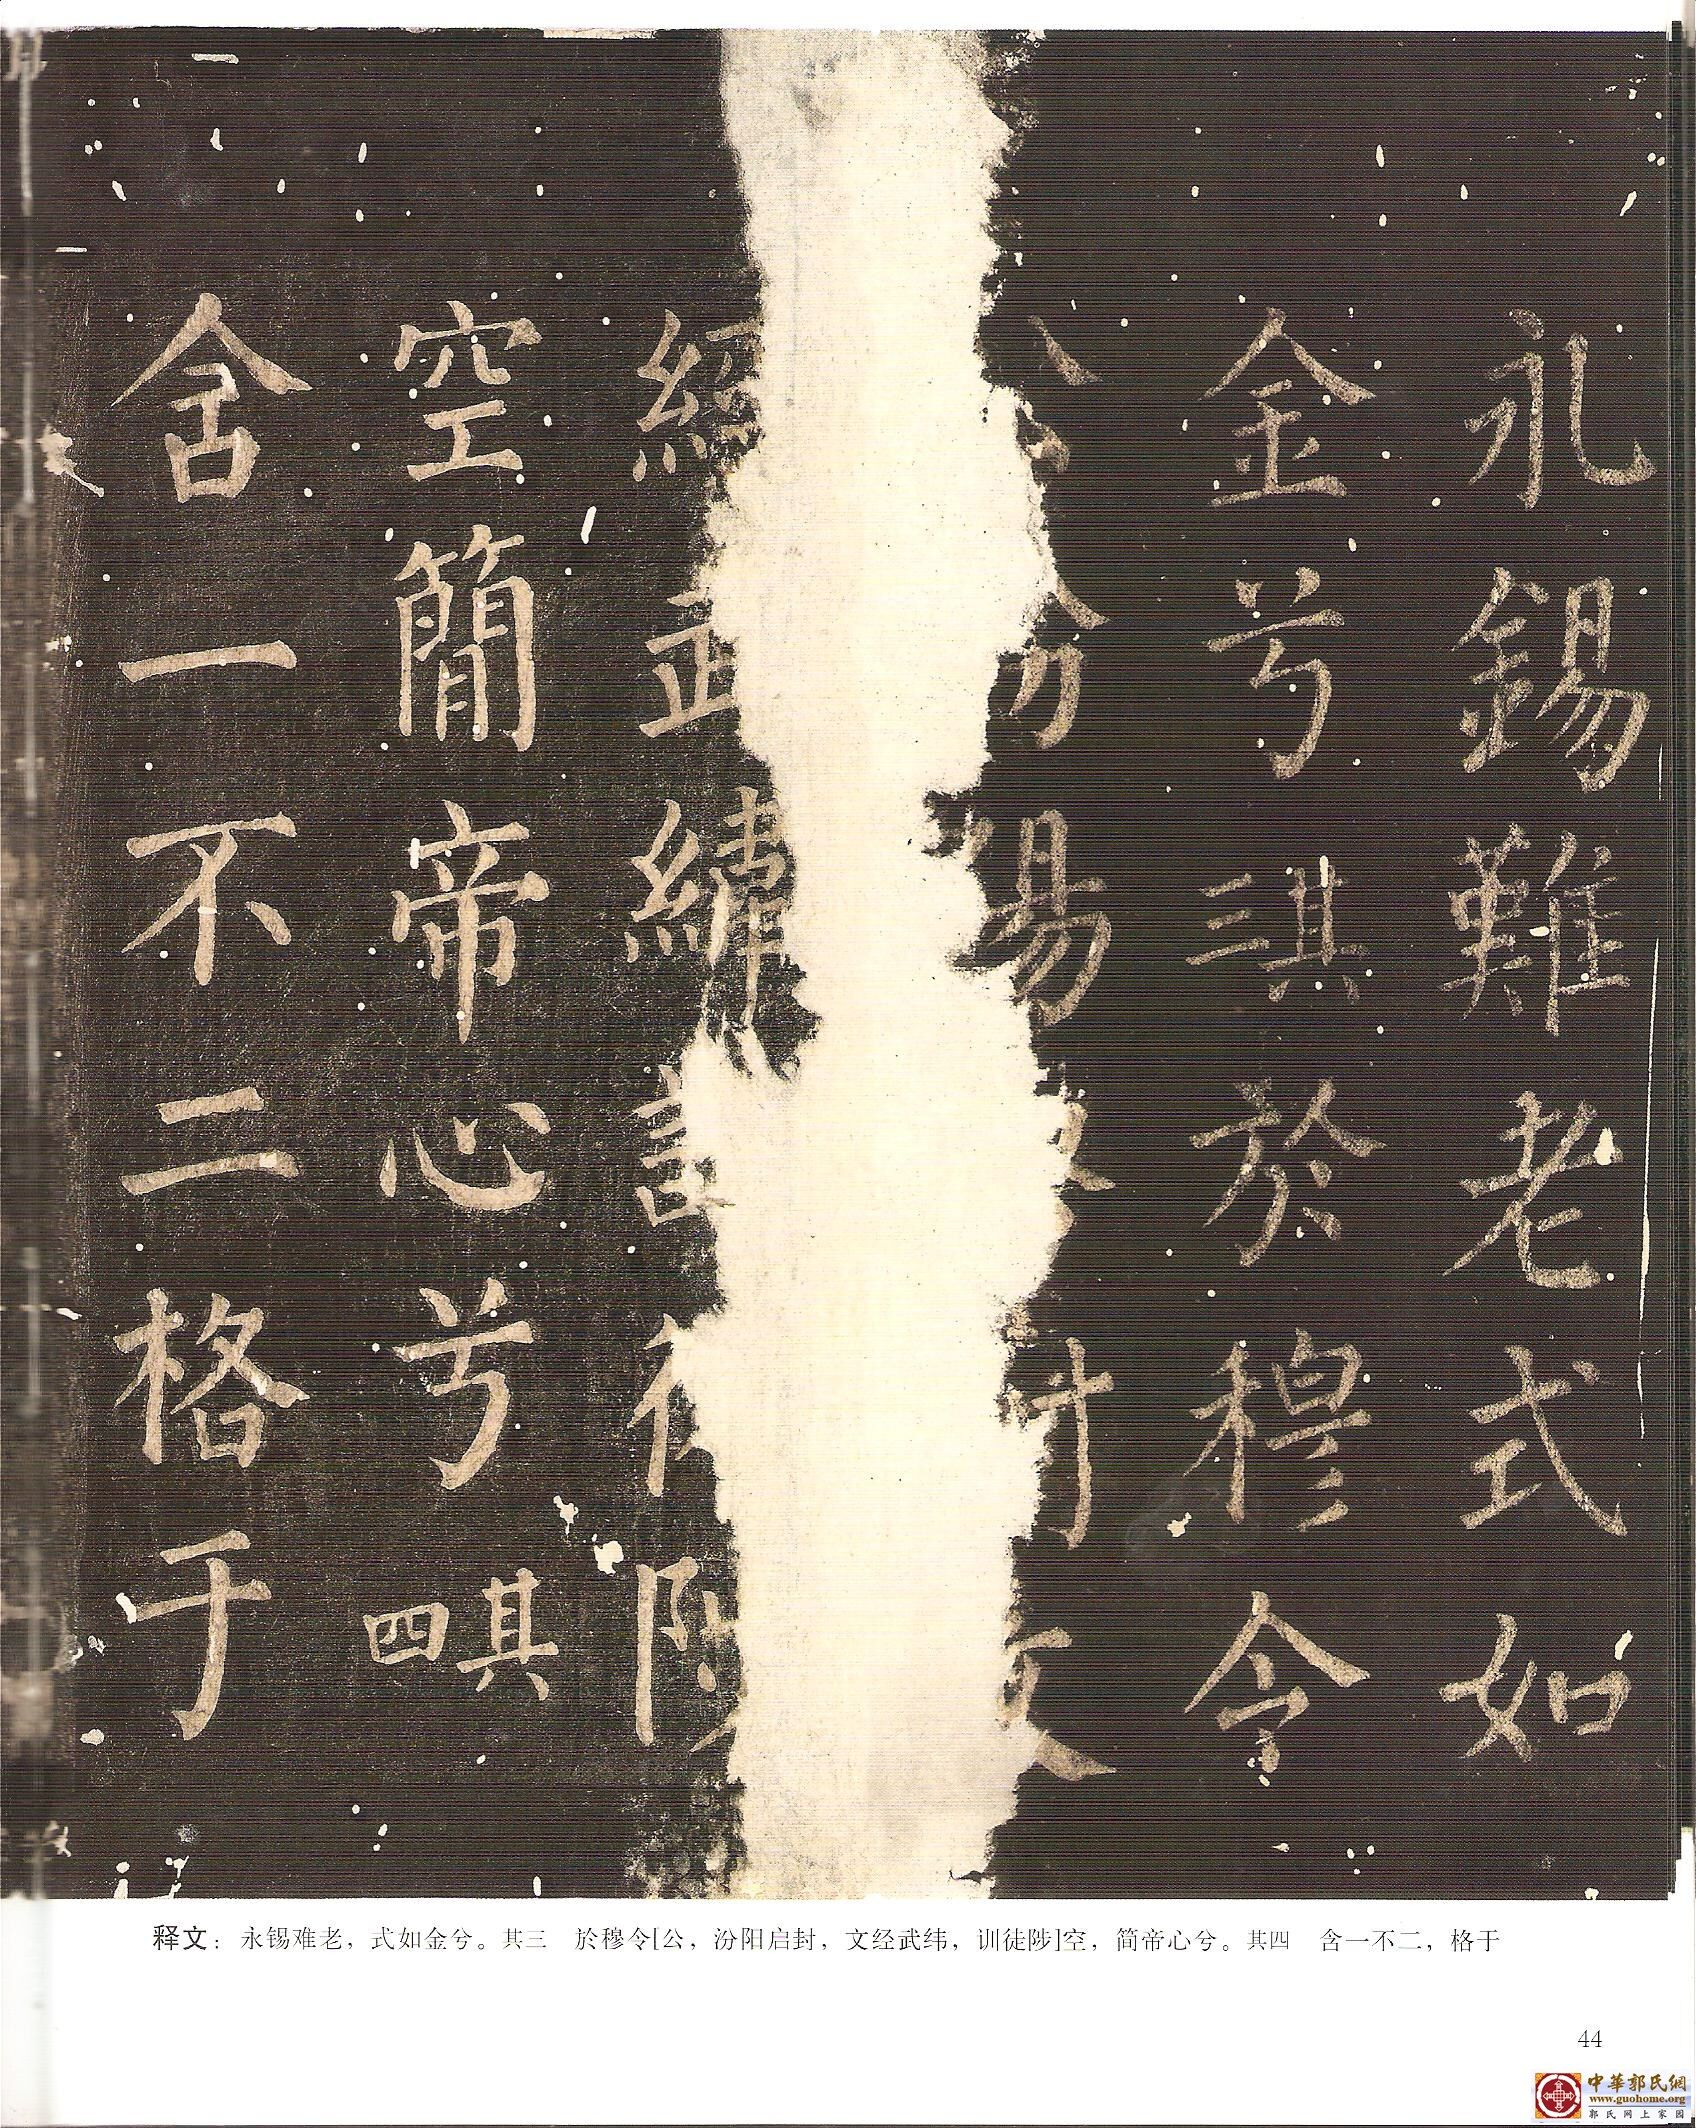 永錫難老式如
金兮其三於穆令
陽封文
經武緯訓
空簡帝心兮其四
含一不二格于
释文：永锡难老，式如金兮。其三　於穆令[公，汾阳启封，文经武纬，训徒陟]空，简帝心兮。其四　含一不二，格于
44
中華郭氏網
www.guohome.org
郭氏网上家园